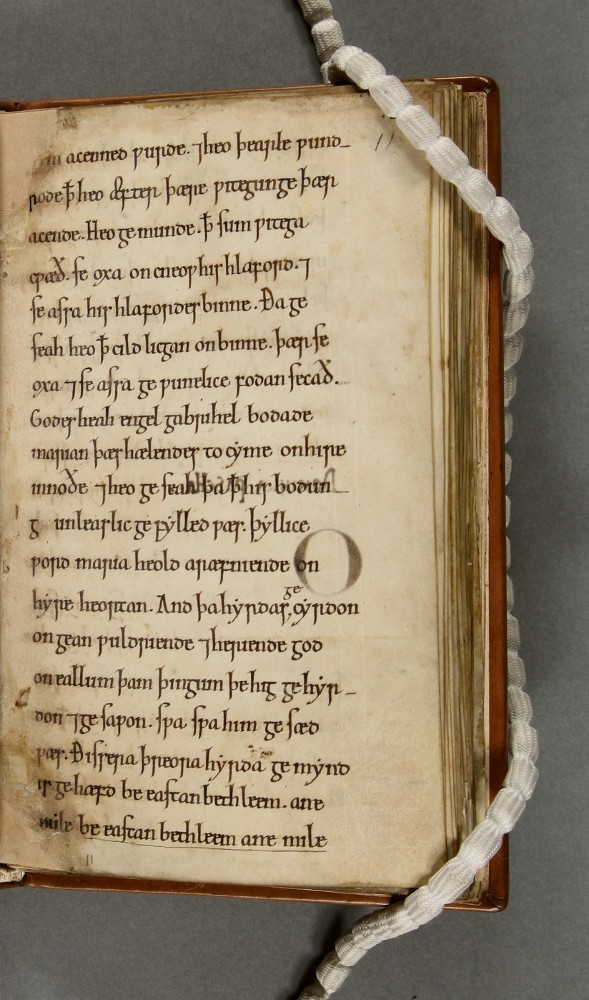 acenned ƿurde. ⁊ heo þearle ƿund-
rode ꝥ heo æfter þære ƿitegunge þær
acende. Heo gemunde. ꝥ sum ƿitega
cƿæð. se oxa oncneoƿ his hlaford. ⁊
se assa his hlafordes binne. Ða ge
seah heo ꝥ cild licgan on binne. þær se
oxa ⁊ se assa geƿunelice fodan secað.
Godes heah engel gabrihel bodade
marian þæs hælendes tocyme on hire
innoðe ⁊ heo geseah þa ꝥ his bodun-
g unleaslic gefylled ƿæs. þyllice
ƿord maria heold aræfniende on
hyre heortan. And þa hyrdas gecyrdon
ongean ƿuldriende ⁊ heriende god
on eallum þam þingum þe hig gehyr-
don ⁊ gesaƿon. sƿa sƿa him gesæd
ƿæs. Ðissera þreora hyrda gemynd
is gehæfd be eastan bethleem. ane
mile be eastan bethleem ane mile